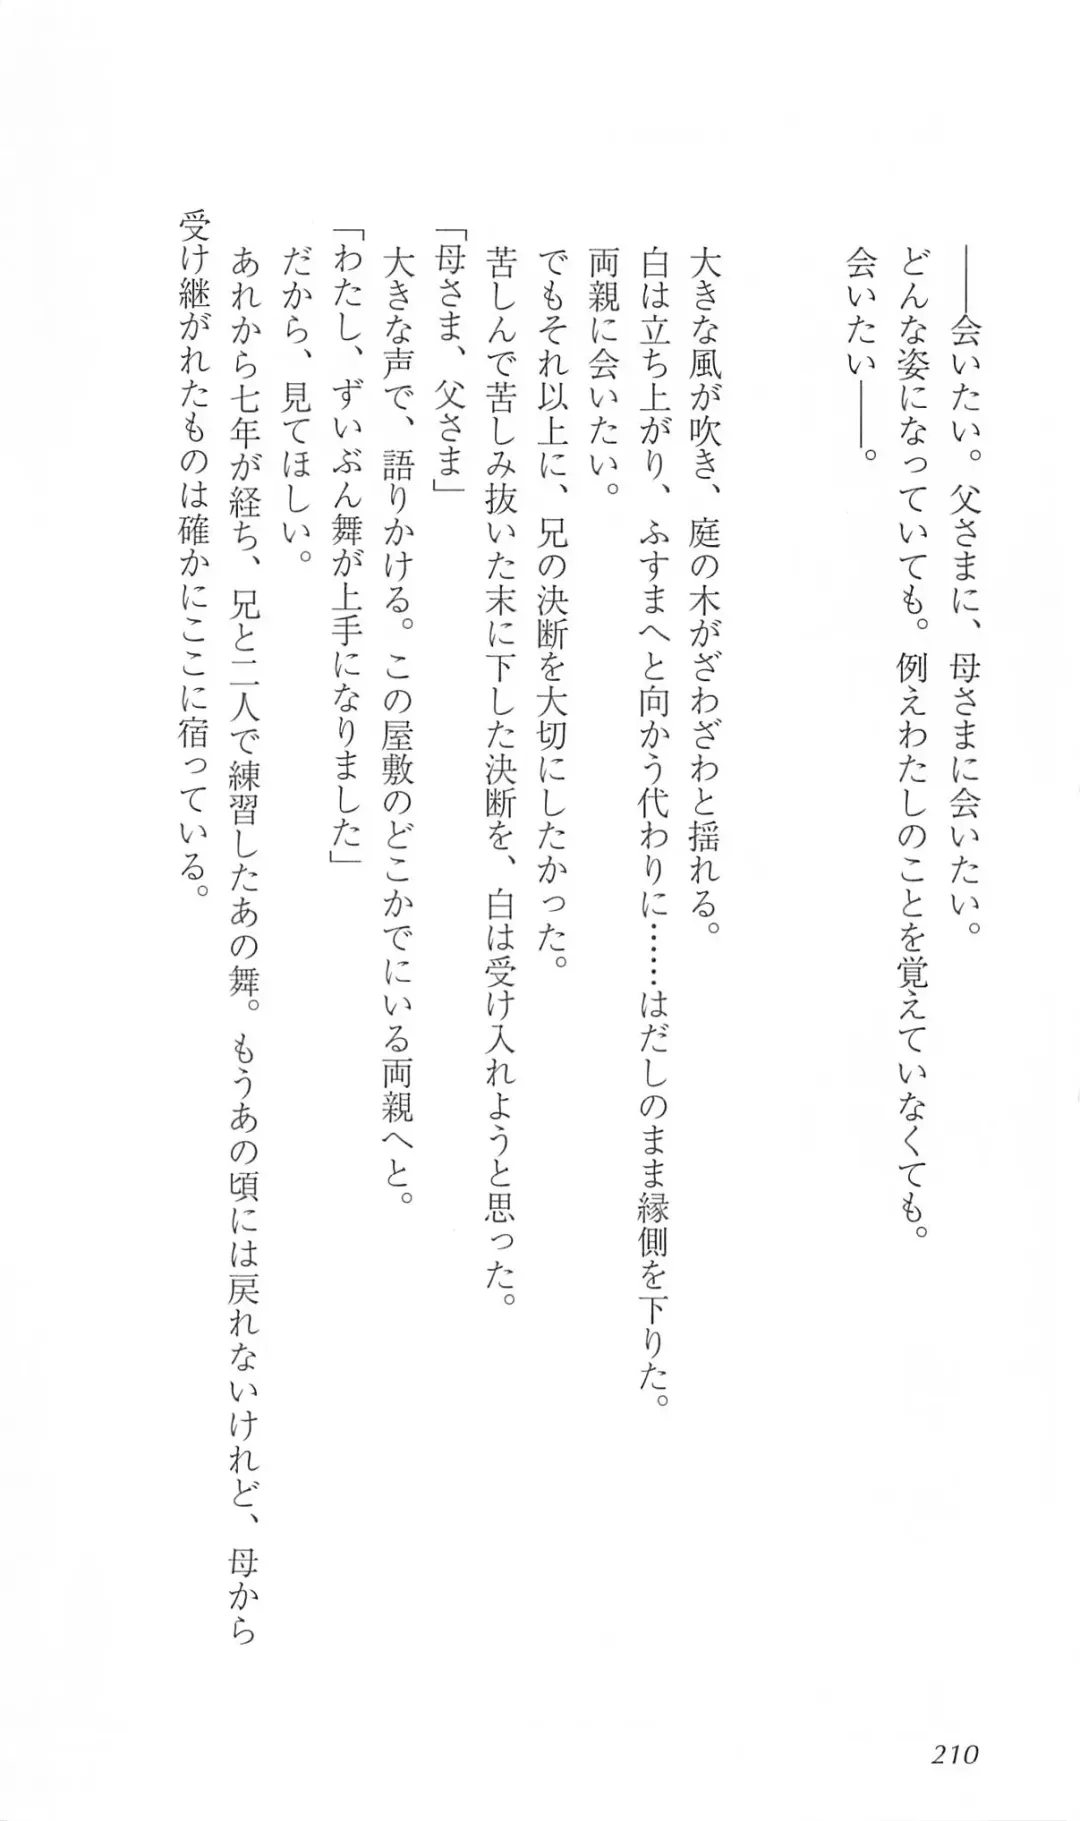 ――会いたい。父さまに、母さまに会いたい。
どんな姿になっていても。例えわたしのことを覚えていなくても。
会いたい――。
大きな風が吹き、庭の木がざわざわと揺れる。
白は立ち上がり、ふすまへと向かう代わりに……はだしのまま縁側を下りた。
両親に会いたい。
でもそれ以上に、兄の決断を大切にしたかった。
苦しんで苦しみ抜いた末に下した決断を、白は受け入れようと思った。
「母さま、父さま」
大きな声で、語りかける。この屋敷のどこかでにいる両親へと。
「わたし、ずいぶん舞が上手になりました」
だから、見てほしい。
あれから七年が経ち、兄と二人で練習したあの舞。もうあの頃には戻れないけれど、母から
受け継がれたものは確かにここに宿っている。
210